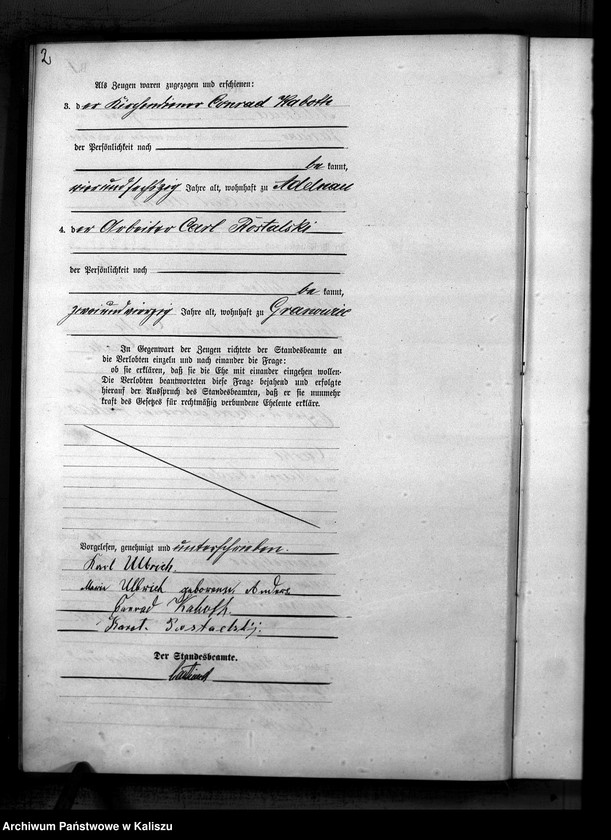 2
Als Zeugen waren zugezogen und erschienen:
3. der Kirchendiener Conrad Kaboth
der Persönlichkeit nach
be kannt,
vierundsechszig Jahre alt, wohnhaft zu Adelnau
4. der Arbeiter Carl Rostalski
der Persönlichkeit nach
be kannt,
zweiundvierzig Jahre alt, wohnhaft zu Granowiec
In Gegenwart der Zeugen richtete der Standesbeamte an
die Verlobten einzeln und nach einander die Frage:
ob sie erklären, daß sie die Ehe mit einander eingehen wollen.
Die Verlobten beantworteten diese Frage bejahend und erfolgte
hierauf der Ausspruch des Standesbeamten, daß er sie nunmehr
kraft des Gesetzes für rechtmäßig verbundene Eheleute erkläre.
Vorgelesen, genehmigt und unterschrieben.
Karl Ulbrich.
Marie Ulbrich geborene Anders
Conrad Kaboth
Der Standesbeamte.
Archiwum Państwowe w Kaliszu